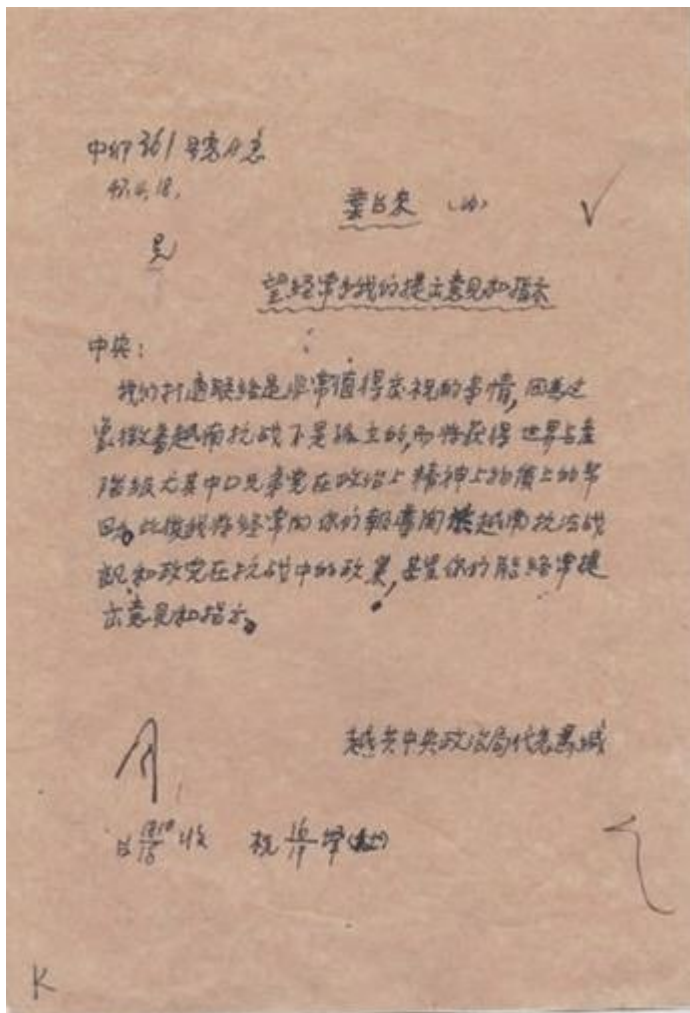 47.4.18.
望经常予我们提出意见和指示
中央:
我们打通联络是非常值得庆祝的事情,因为这
象徵着越南抗战不是孤立的,而将获得世界无产
阶级尤其中国兄弟党在政治上精神上物质上的帮
助。此后我将经常向你们报导关于越南抗法战
况和我党在抗战中的政策,甚望你们能经常提
出意见和指示。
越共中央政治局代表
K